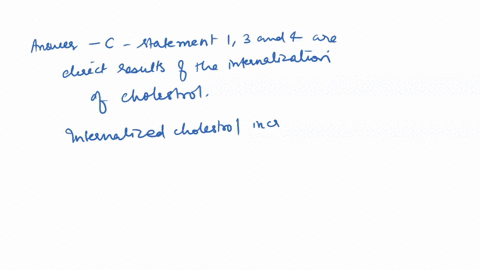 Answer - C - statement 1, 3 and 4 are
direct results of the internalization
of cholestrol.
Internalized cholestrol incr